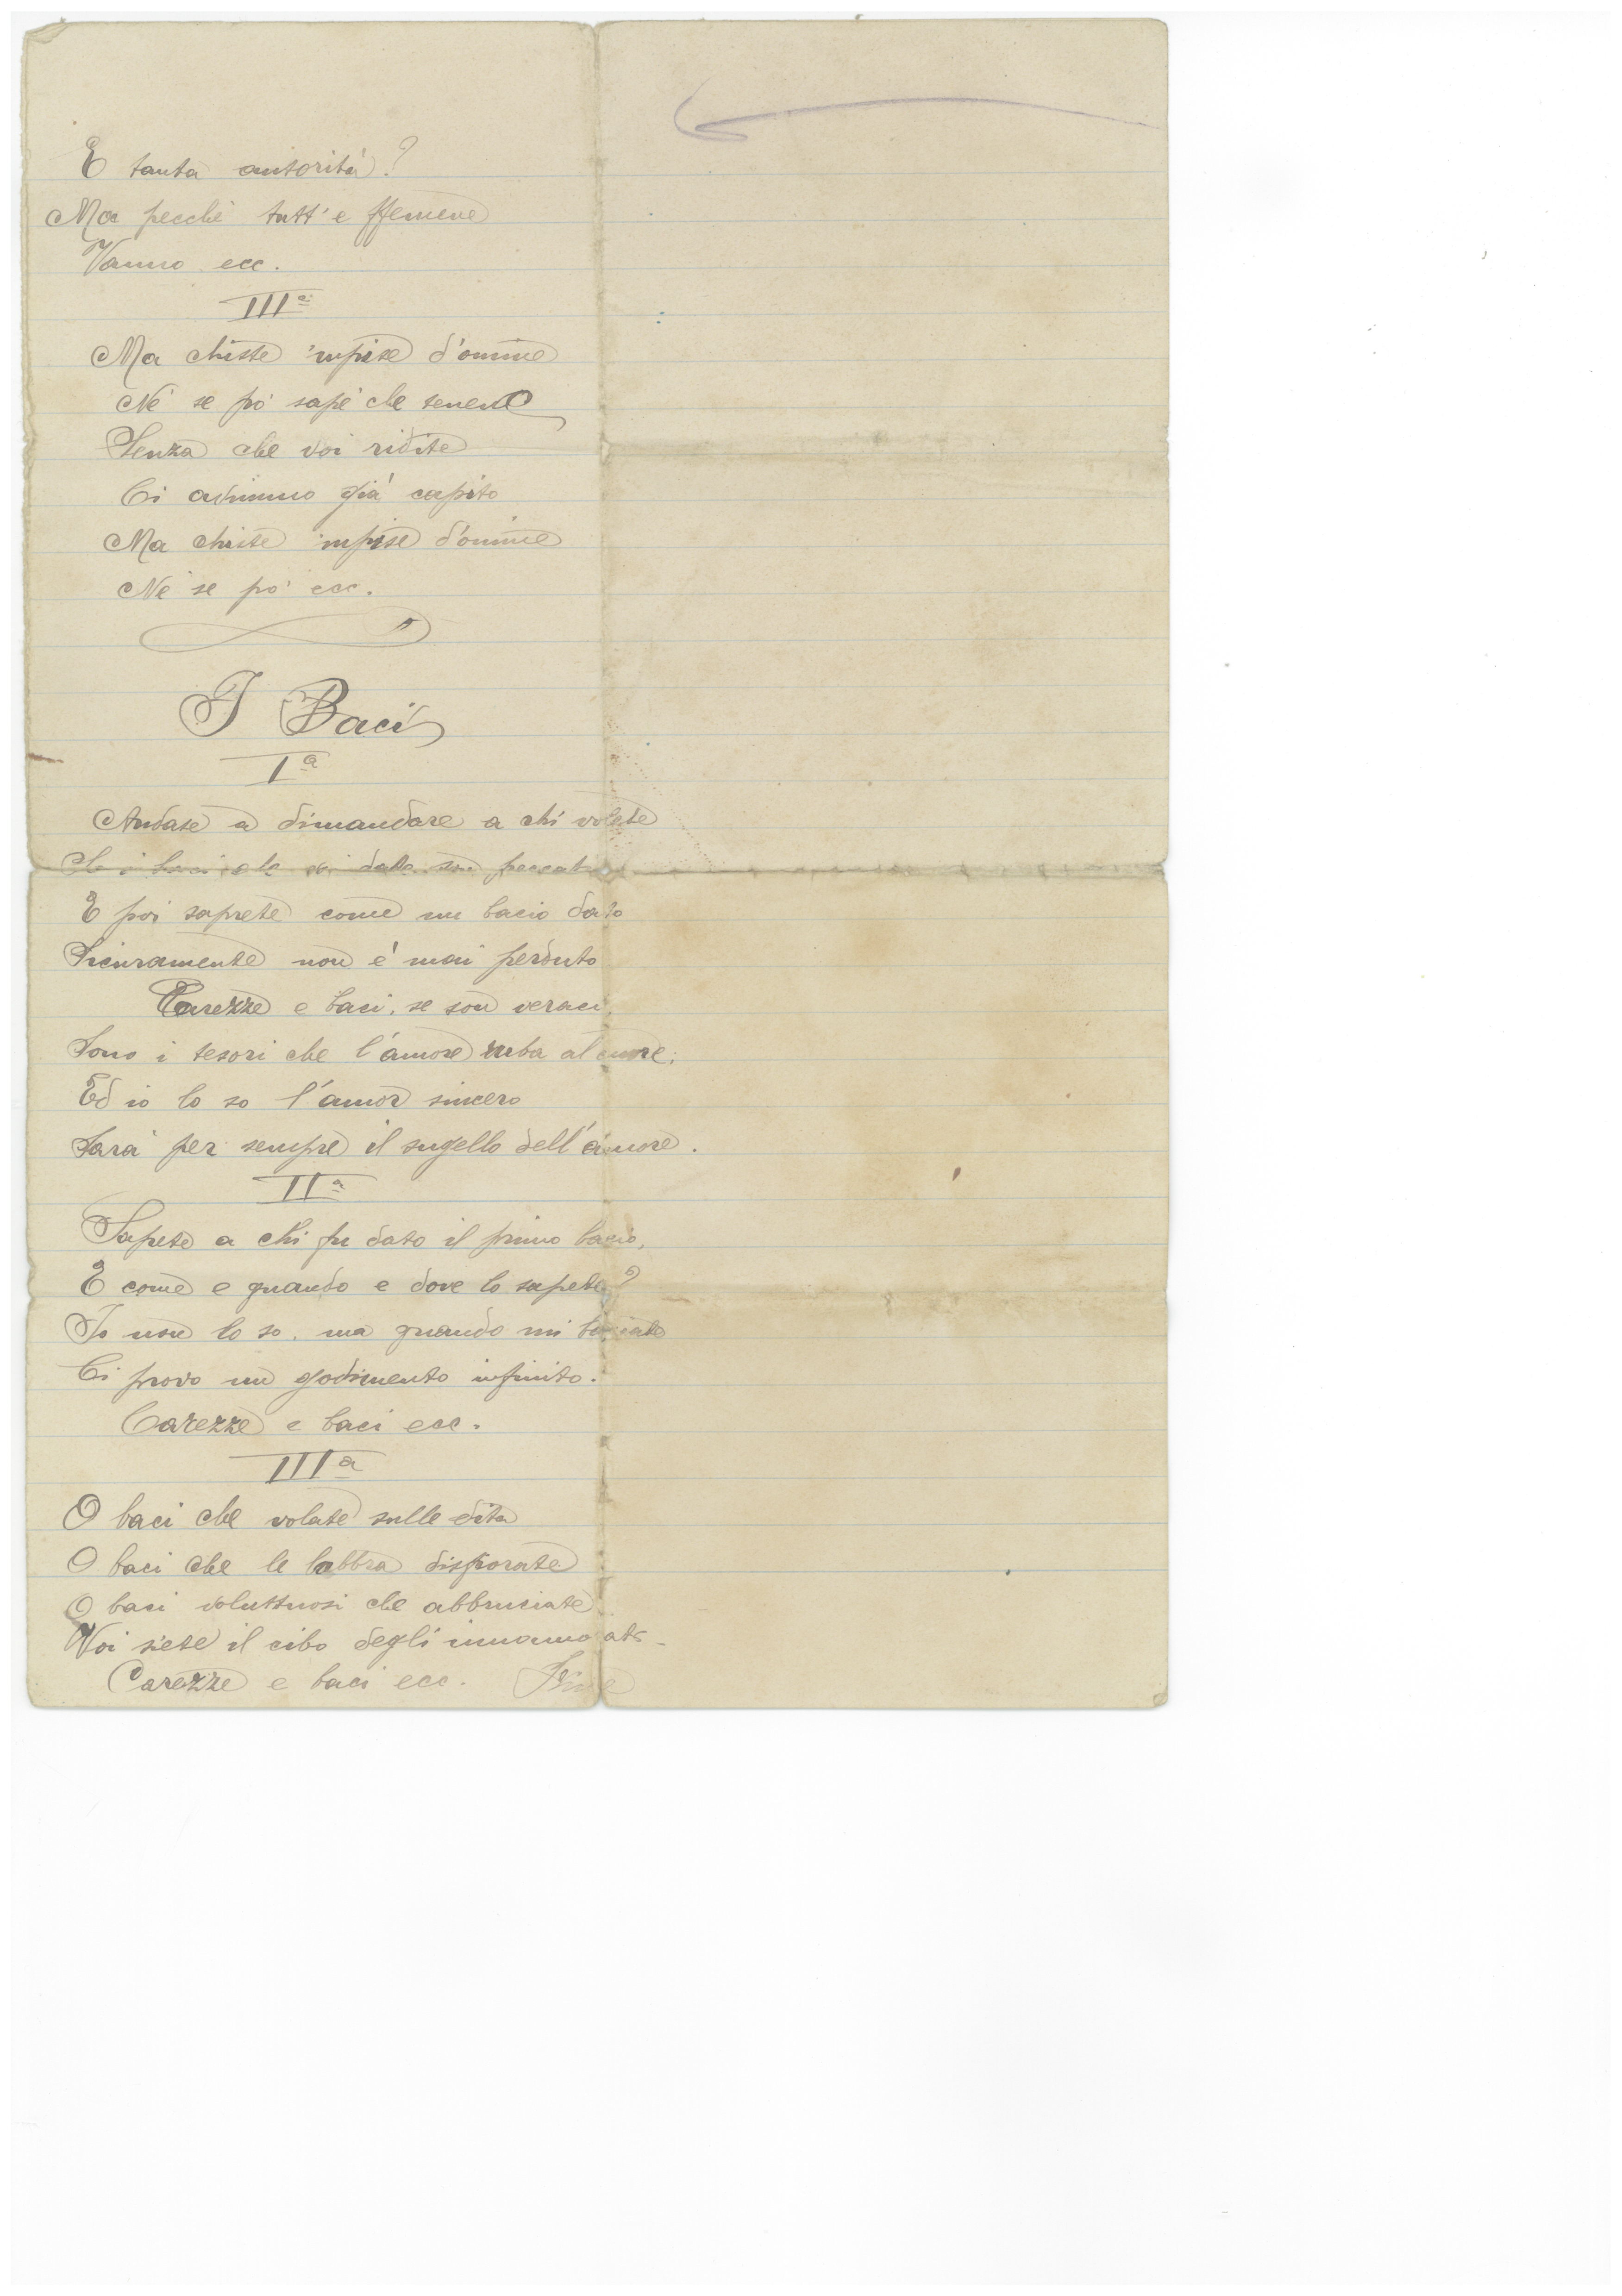 E tanta autorità?
Ma pecchè tutt'e ffemene
Vanno ecc.
IIIª
Ma chiste 'mpise d'uomine
Nè se pò sapè che tenene
Senza che voi ridite
Ci avimmo già capito
Ma chiste 'mpise d'uomine
Nè se pò ecc.
I Baci
Iª
Andate a dimandare a chi volete
Se i baci che vi date son peccato
E poi saprete come un bacio dato
Sicuramente non è mai perduto
Carezze e baci, se son veraci,
Sono i tesori che l'amore ruba al cuore;
Ed io lo so l'amor sincero
Sarà per sempre il sugello dell'amore.
IIª
Sapete a chi fu dato il primo bacio,
E come e quando e dove lo sapete?
Io non lo so, ma quando mi baciate
Ci provo un godimento infinito.
Carezze e baci ecc.
IIIª
O baci che volate sulle dita
O baci che le labbra disfiorate
O baci voluttuosi che abbruciate
Voi siete il cibo degli innamorati
Carezze e baci ecc. Fine